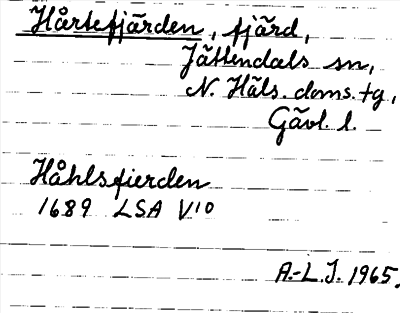 Hårtefjärden, fjärd,
Jättendals sn,
N. Häls. doms. tg,
Gävl. l.
Håhlsfierden
1689 LSA V10
A.-L.J. 1965.